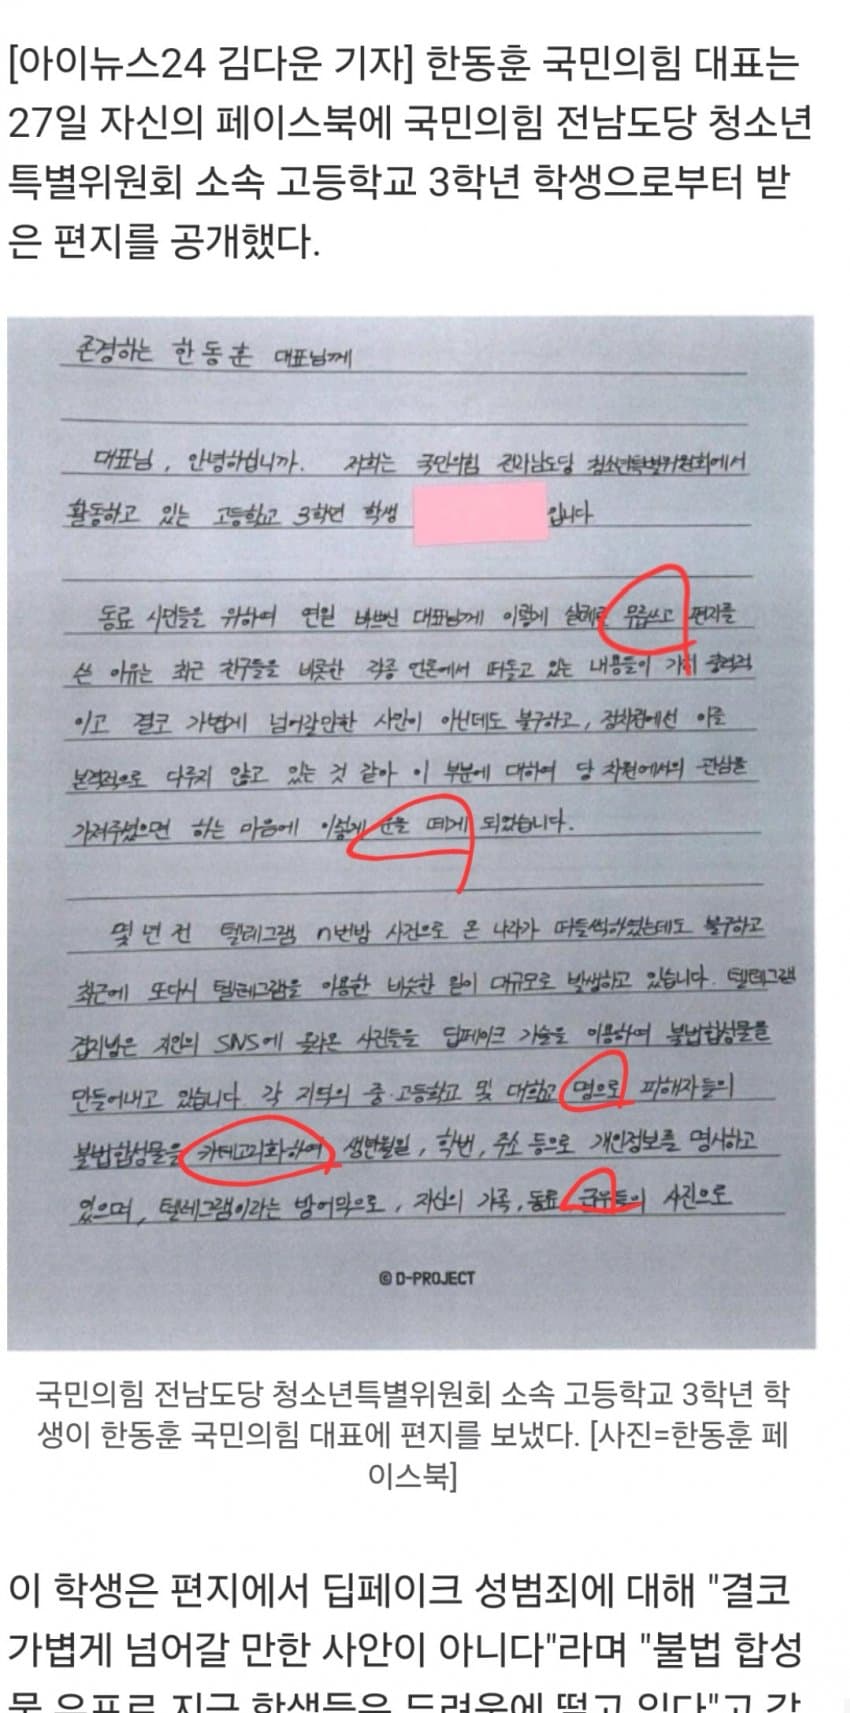 [아이뉴스24 김다운 기자] 한동훈 국민의힘 대표는
27일 자신의 페이스북에 국민의힘 전남도당 청소년
특별위원회 소속 고등학교 3학년 학생으로부터 받
은 편지를 공개했다.
존경하는 한동훈 대표님께
대표님, 안녕하십니까. 저희는 국민의힘 전라남도당 청소년특별위원회에서
활동하고 있는 고등학교 3학년 학생 입니다
동료 시민들을 위하여 연일 바쁘신 대표님께 이렇게 실례를 무릅쓰고 편지를
쓴 이유는 최근 친구들을 비롯한 각종 언론에서 떠돌고 있는 내용들이 가히 충격적
이고 결코 가볍게 넘어갈만한 사안이 아닌데도 불구하고, 정치권에선 이를
본격적으로 다루지 않고 있는 것 같아 이 부분에 대하여 당 차원에서의 관심을
가져주셨으면 하는 마음에 이렇게 운을 떼게 되었습니다.
몇 년 전 텔레그램 n번방 사건으로 온 나라가 떠들썩하였는데도 불구하고
최근에 또다시 텔레그램을 이용한 비슷한 일이 대규모로 발생하고 있습니다. 텔레그램
겹지방은 지인의 SNS에 올라온 사진들을 딥페이크 기술을 이용하여 불법합성물을
만들어내고 있습니다. 각 지역의 중·고등학교 및 대학교 명으로 피해자들의
불법합성물을 카테고리화하여 생년월일, 학번, 주소 등으로 개인정보를 명시하고
있으며, 텔레그램이라는 방어막으로, 자신의 가족, 동료 급우들의 사진으로
© D-PROJECT
국민의힘 전남도당 청소년특별위원회 소속 고등학교 3학년 학
생이 한동훈 국민의힘 대표에 편지를 보냈다. [사진=한동훈 페
이스북]
이 학생은 편지에서 딥페이크 성범죄에 대해 "결코
가볍게 넘어갈 만한 사안이 아니다"라며 "불법 합성
물 유포로 지금 학생들은 두려움에 떨고 있다"고 강